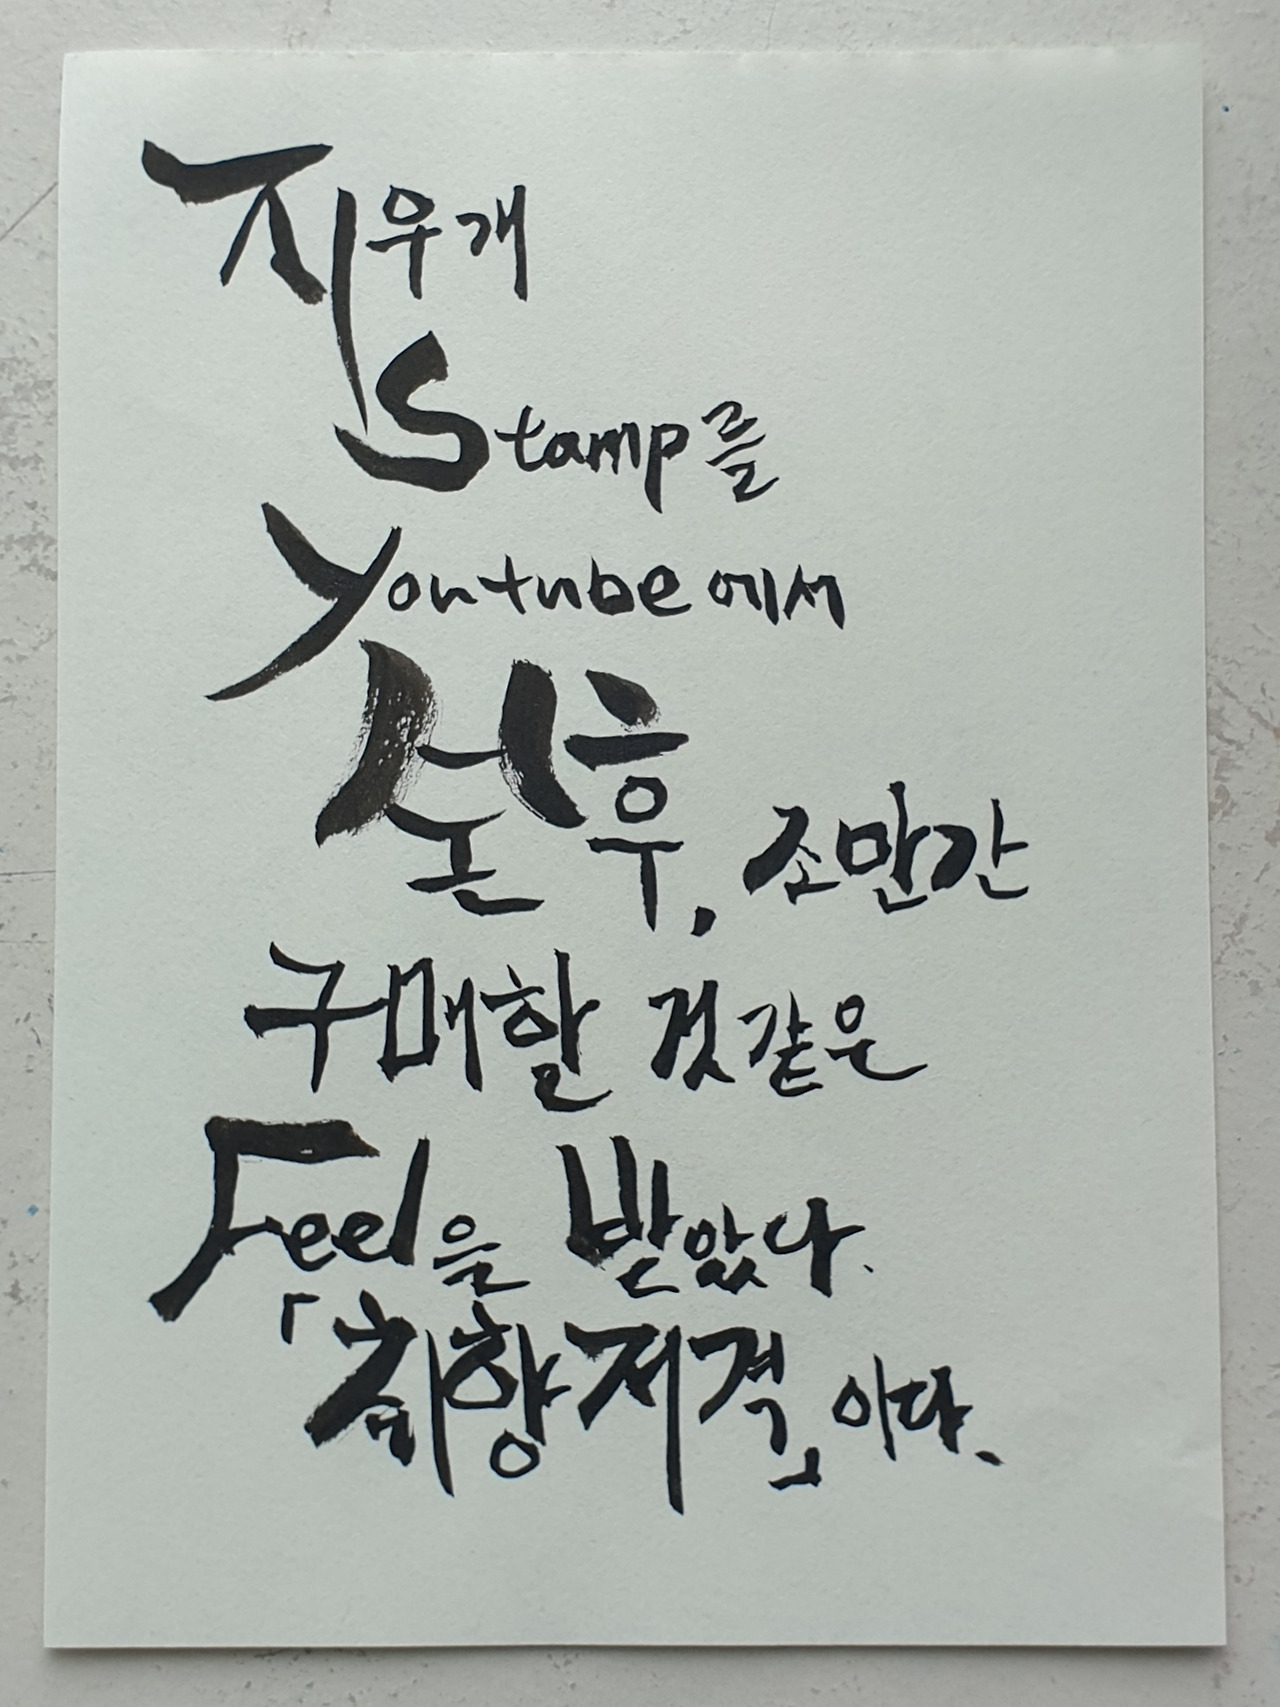 지우개
Stamp를
Youtube에서
본 후, 조만간
구매할 것 같은
Feel을 받았다.
「취향저격」이다.